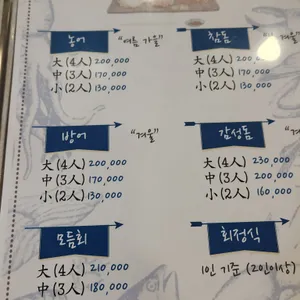 농어 "여름 가을"
大 (4人) 200,000
中 (3人) 170,000
小 (2人) 130,000
참돔
大 (4人) 200,000
中 (3人) 170,000
小 (2人) 130,000
방어 "겨울"
大 (4人) 200,000
中 (3人) 170,000
小 (2人) 130,000
감성돔 "겨울
大 (4人) 230,000
中 (3人) 200,000
小 (2人) 160,000
모듬회
大 (4人) 210,000
中 (3人) 180,000
회정식
1인 기준 (2인이상)